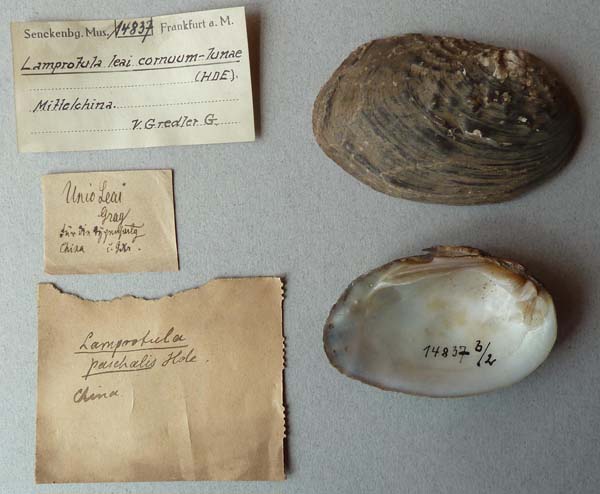 Senckenbg. Mus. 14837 Frankfurt a. M.
Lamprotula leai cornuum-lunae
(HDE).
Mittelchina.
V. Gredler G.
Unio Leai
Gray
China
Lamprotula
paschalis Hde.
China
14837 3/2